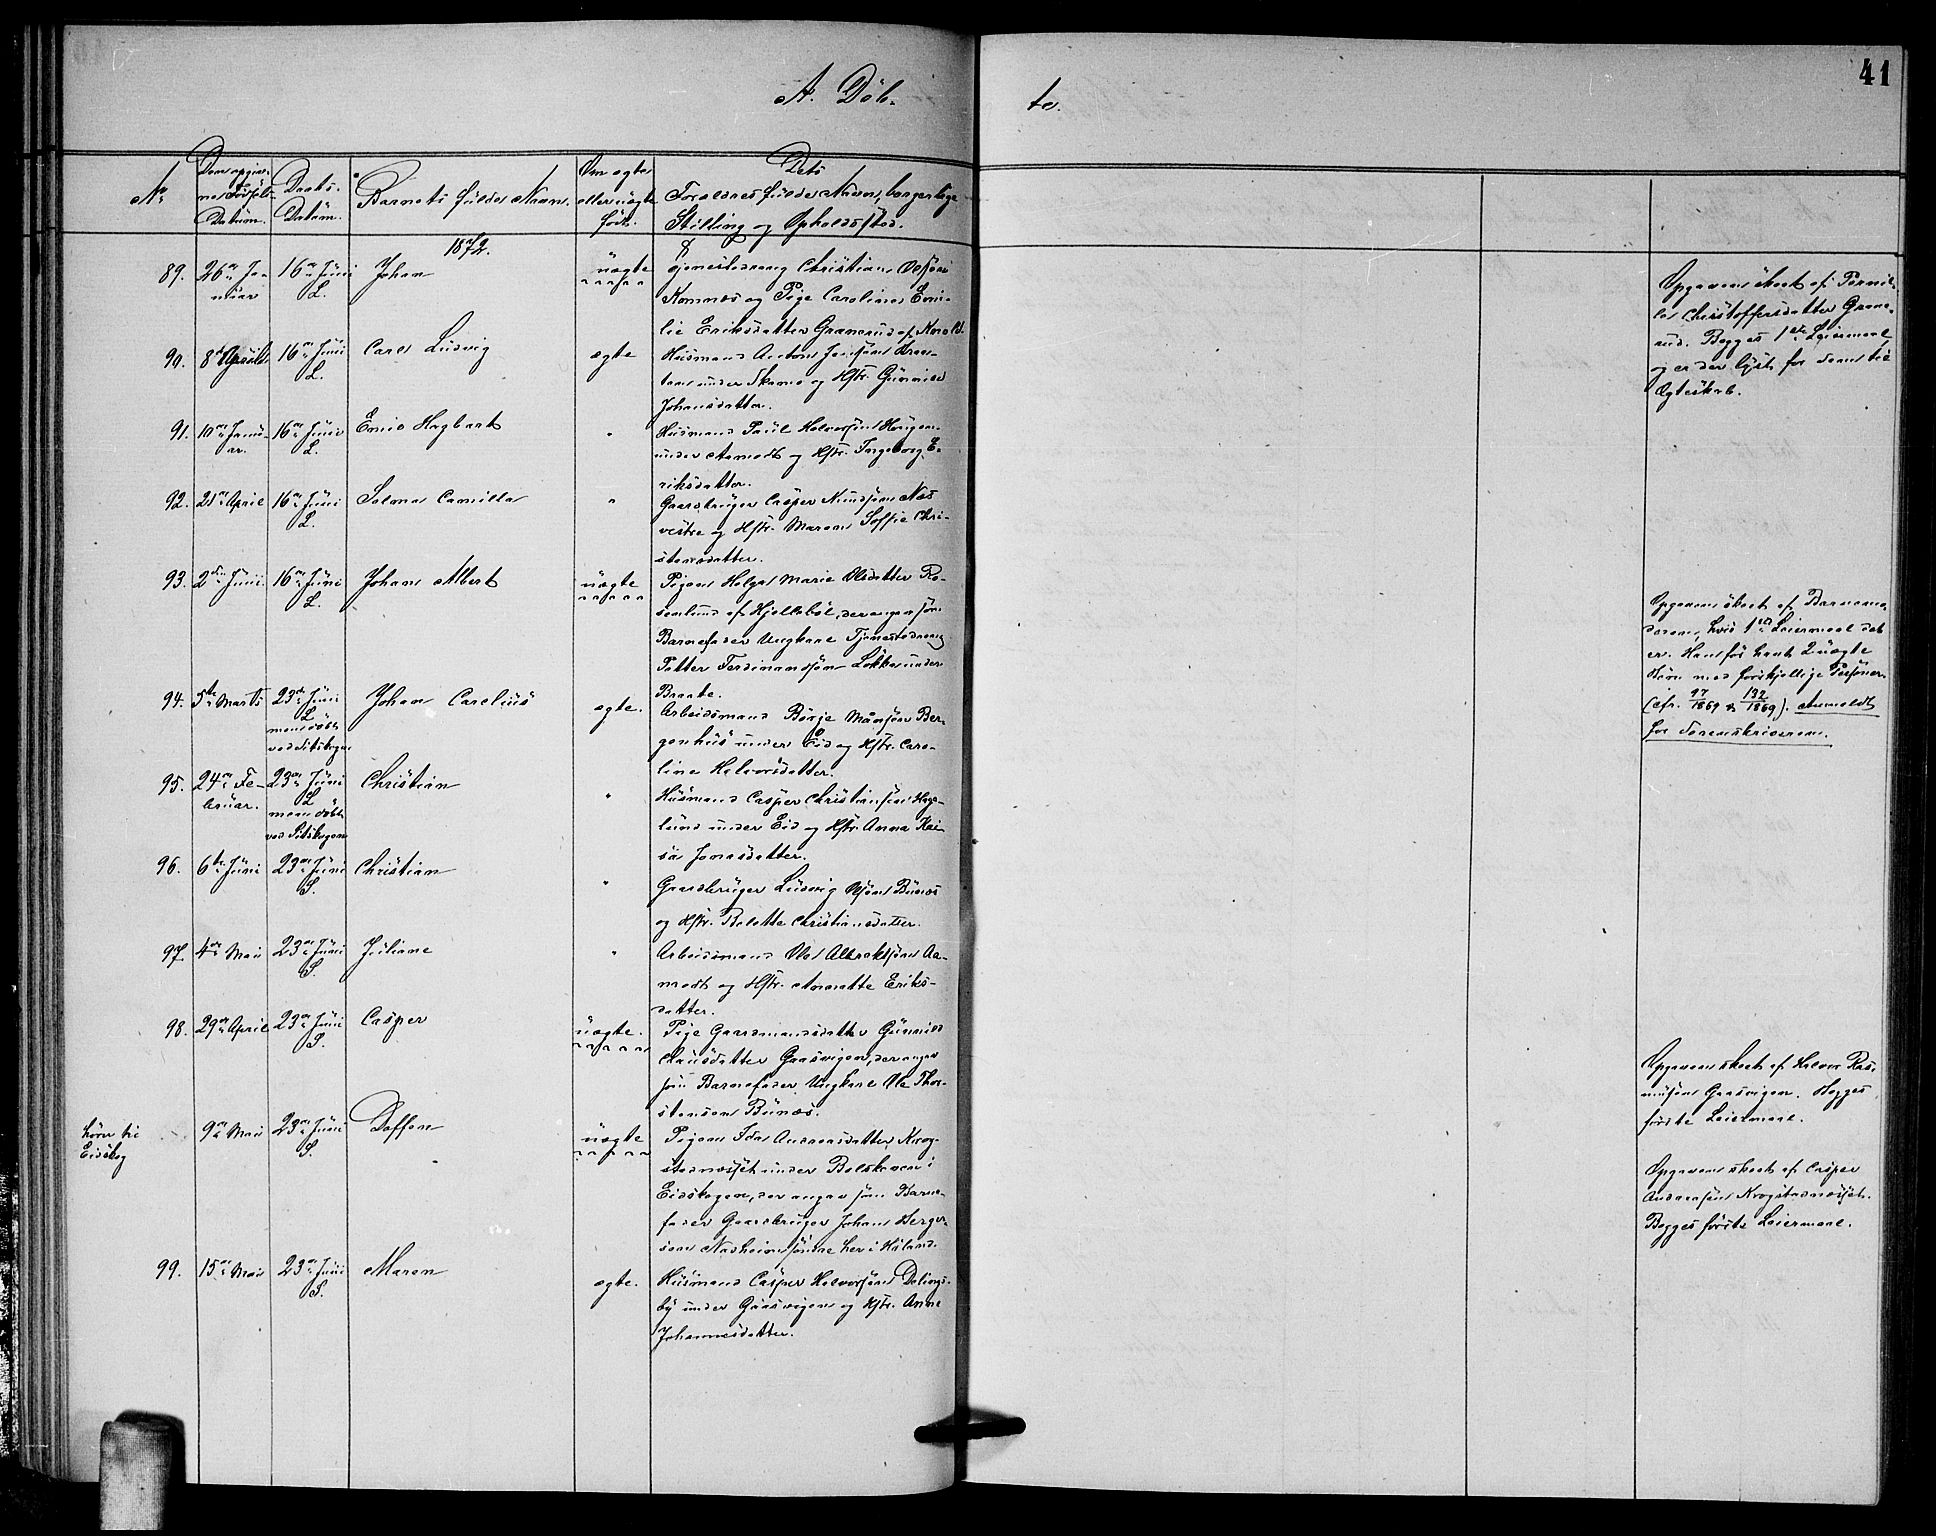 A. Døb-
te.
41
No
Den opgivne Fødsels-Datum.
Daabs-Datum.
Barnets fulde Navn.
Om ægte eller uægte født.
Dets Forældres fulde Navne, borgerlige Stilling og Opholdssted.
1872.
89.
26de Ja-
nuar
16de Juni
L.
Johan
uægte
Tjenestedreng Christian Olsen
Komnæs og Pige Caroline Emi-
lie Eriksdatter Grænerud af
Opgaven skeet af Pernil-
le Christoffersdatter Græne-
rud. Begges 1ste Leiermaal,
og er der lyst for dem til
Ægteskab.
90.
8de April
16de Juni
L.
Carl Ludvig
ægte
Husmand Anton Jensen
under og Hstr. Gunnild
Johansdatter.
91.
10de Janu-
ar.
16de Juni
L.
Emil Hagbart
"
Husmand Paul Halvorsen Haugen
under Aamodt og Hstr. Ingeborg E-
riksdatter.
92.
21de April
16de Juni
L.
Selma Camilla
"
Gaardbruger Casper Knudsen Næs
vestre og Hstr. Maren Soffie Chri-
stensdatter.
93.
2den Juni.
16de Juni
L.
Johan Albert
uægte
Pigen Helga Marie Olsdatter Ro-
senlund af Hjellebøl, der angav som
Barnefader Ungkarl Tjenestedreng
Petter Ferdinandsen Løkken under
Braate.
Opgaven skeet af Barnemo-
deren, hvis 1ste Leiermaal det
er. Han før havt 2 uægte
Børn med forskjellige Personer
(cfr. 97/1869 & 132/1869). Anmeldt
for Sorenskriveren.
94.
5te Marts
23de Juni
L
men døbt
ved Setskogen
Johan Carelius
ægte.
Arbeidsmand Børje Månsen Ber-
genhus under Eid og Hstr. Caro-
line Halvorsdatter.
95.
24de Fe-
bruar.
23de Juni
L
men døbt
ved Setskogen
Christian
"
Husmand Casper Christiansen Hag-
lund under Eid og Hstr. Anna Kai-
sa Jonasdatter.
96.
6te Juni
23de Juni
S.
Christian
"
Gaardbruger Ludvig Olsen Bunæs
og Hstr. Bolette Christiansdatter.
97.
4de Mai
23de Juni
S.
Juliane
"
Arbeidsmand Ole Albrektsen Aa-
modt og Hstr. Anette Eriks-
datter.
98.
29de April
23de Juni
S.
Casper
uægte.
Pige Gaardmandsdatter Gunnild
Clausdatter Gaasvigen, der angav
som Barnefader Ungkarl Ole Thor-
stensen Bunæs.
Opgaven skeet af Halvor Ras-
musen Gaasvigen. Begges
første Leiermaal.
hører til
Eidskog
9de Mai
23de Juni
S.
Doffen
uægte
Pigen Ida Andreasdatter Krog-
stadnæsset under Bolskaven i
Eidskogen, der angav som Barne-
fader Gaardbruger Johan Berger-
sen Nasheim søndre her i Høland.
Opgaven skeet af Casper
Andersen Krogstadnæsset.
Begges første Leiermaal.
99.
15de Mai
23de Juni
S.
Maren
ægte.
Husmand Casper Halvorsen Delings-
by under Gaasvigen og Hstr. Anne
Johannesdatter.